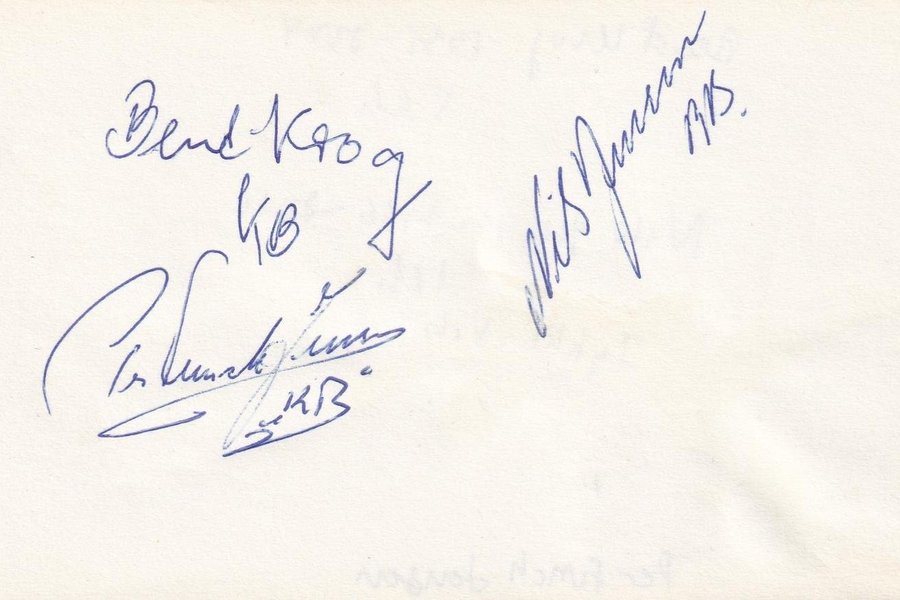 Bent Krog
KB
Nils Jensen
KB.
Per Funch Jensen
"KB"